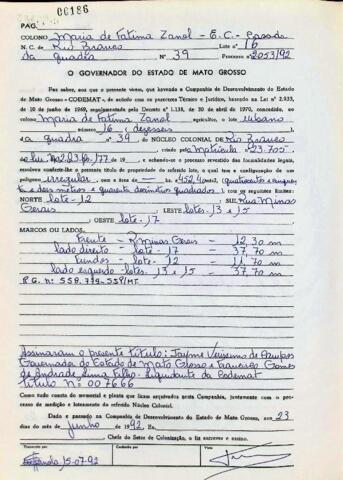 00186
PAG.
COLONO Maria de Fatima Zanol - E.C. - Casada
N. C. de Rio Branco Lote nº 16
da quadra Nº 39 Processo nº 2053/92
O GOVERNADOR DO ESTADO DE MATO GROSSO
Faz saber, aos que o presente virem, que havendo a Companhia de Desenvolvimento do Estado
de Mato Grosso - CODEMAT -, de acordo com os pareceres Técnico e Jurídico, baseado na Lei nº 2.933,
de 10 de junho de 1969, regulamentada pelo Decreto nº 1.138, de 30 de abril de 1970, concedido, ao
colono Maria de Fatima Zanol agricultor, o lote urbano
número 16 (dezesseis)
da quadra nº 39 do NÚCLEO COLONIAL DE Rio Branco
, criado pela Matricula nº 23.705
de 19 , e achando-se o processo revestido das formalidades legais,
resolveu conferir-lhe o presente título de propriedade do referido lote, o qual tem a configuração de um
polígono irregular com a área de 452,40 (quatrocentos e cinquen
ta e dois metros e quarenta decimetros quadrados) com os seguintes limites:
NORTE lote - 12 ; SUL Rua Minas
Gerais ; LESTE lotes - 13 e 15
; OESTE lote - 17
MARCOS OU LADOS.
Frente - R. Minas Gerais - 12,30 m
lado direito - lote - 17 - 37,70 m
Fundos - lote - 12 - 11,70 m
lado esquerdo - lotes - 13 e 15 - 37,70 m
P.G. nº: 558.779-SSP/MT.
Assinaram o presente título: Jayme Verissimo de Campos
Governador do Estado de Mato Grosso e Gomes
de Andrade Lima Filho - Liquidante da Codemat
Título Nº 007666
Como tudo consta do memorial e planta que ficam arquivados nesta Companhia, juntamente com o pro-
cesso de medição e loteamento do referido Núcleo Colonial.
Dado e passado na Companhia de Desenvolvimento do Estado de Mato Grosso, aos 23
dias do mês de junho de 1992. Eu,
Chefe do Setor de Colonização, o fiz escrever e assino.
Transcrito por
Conferido
Visto
15-07-92